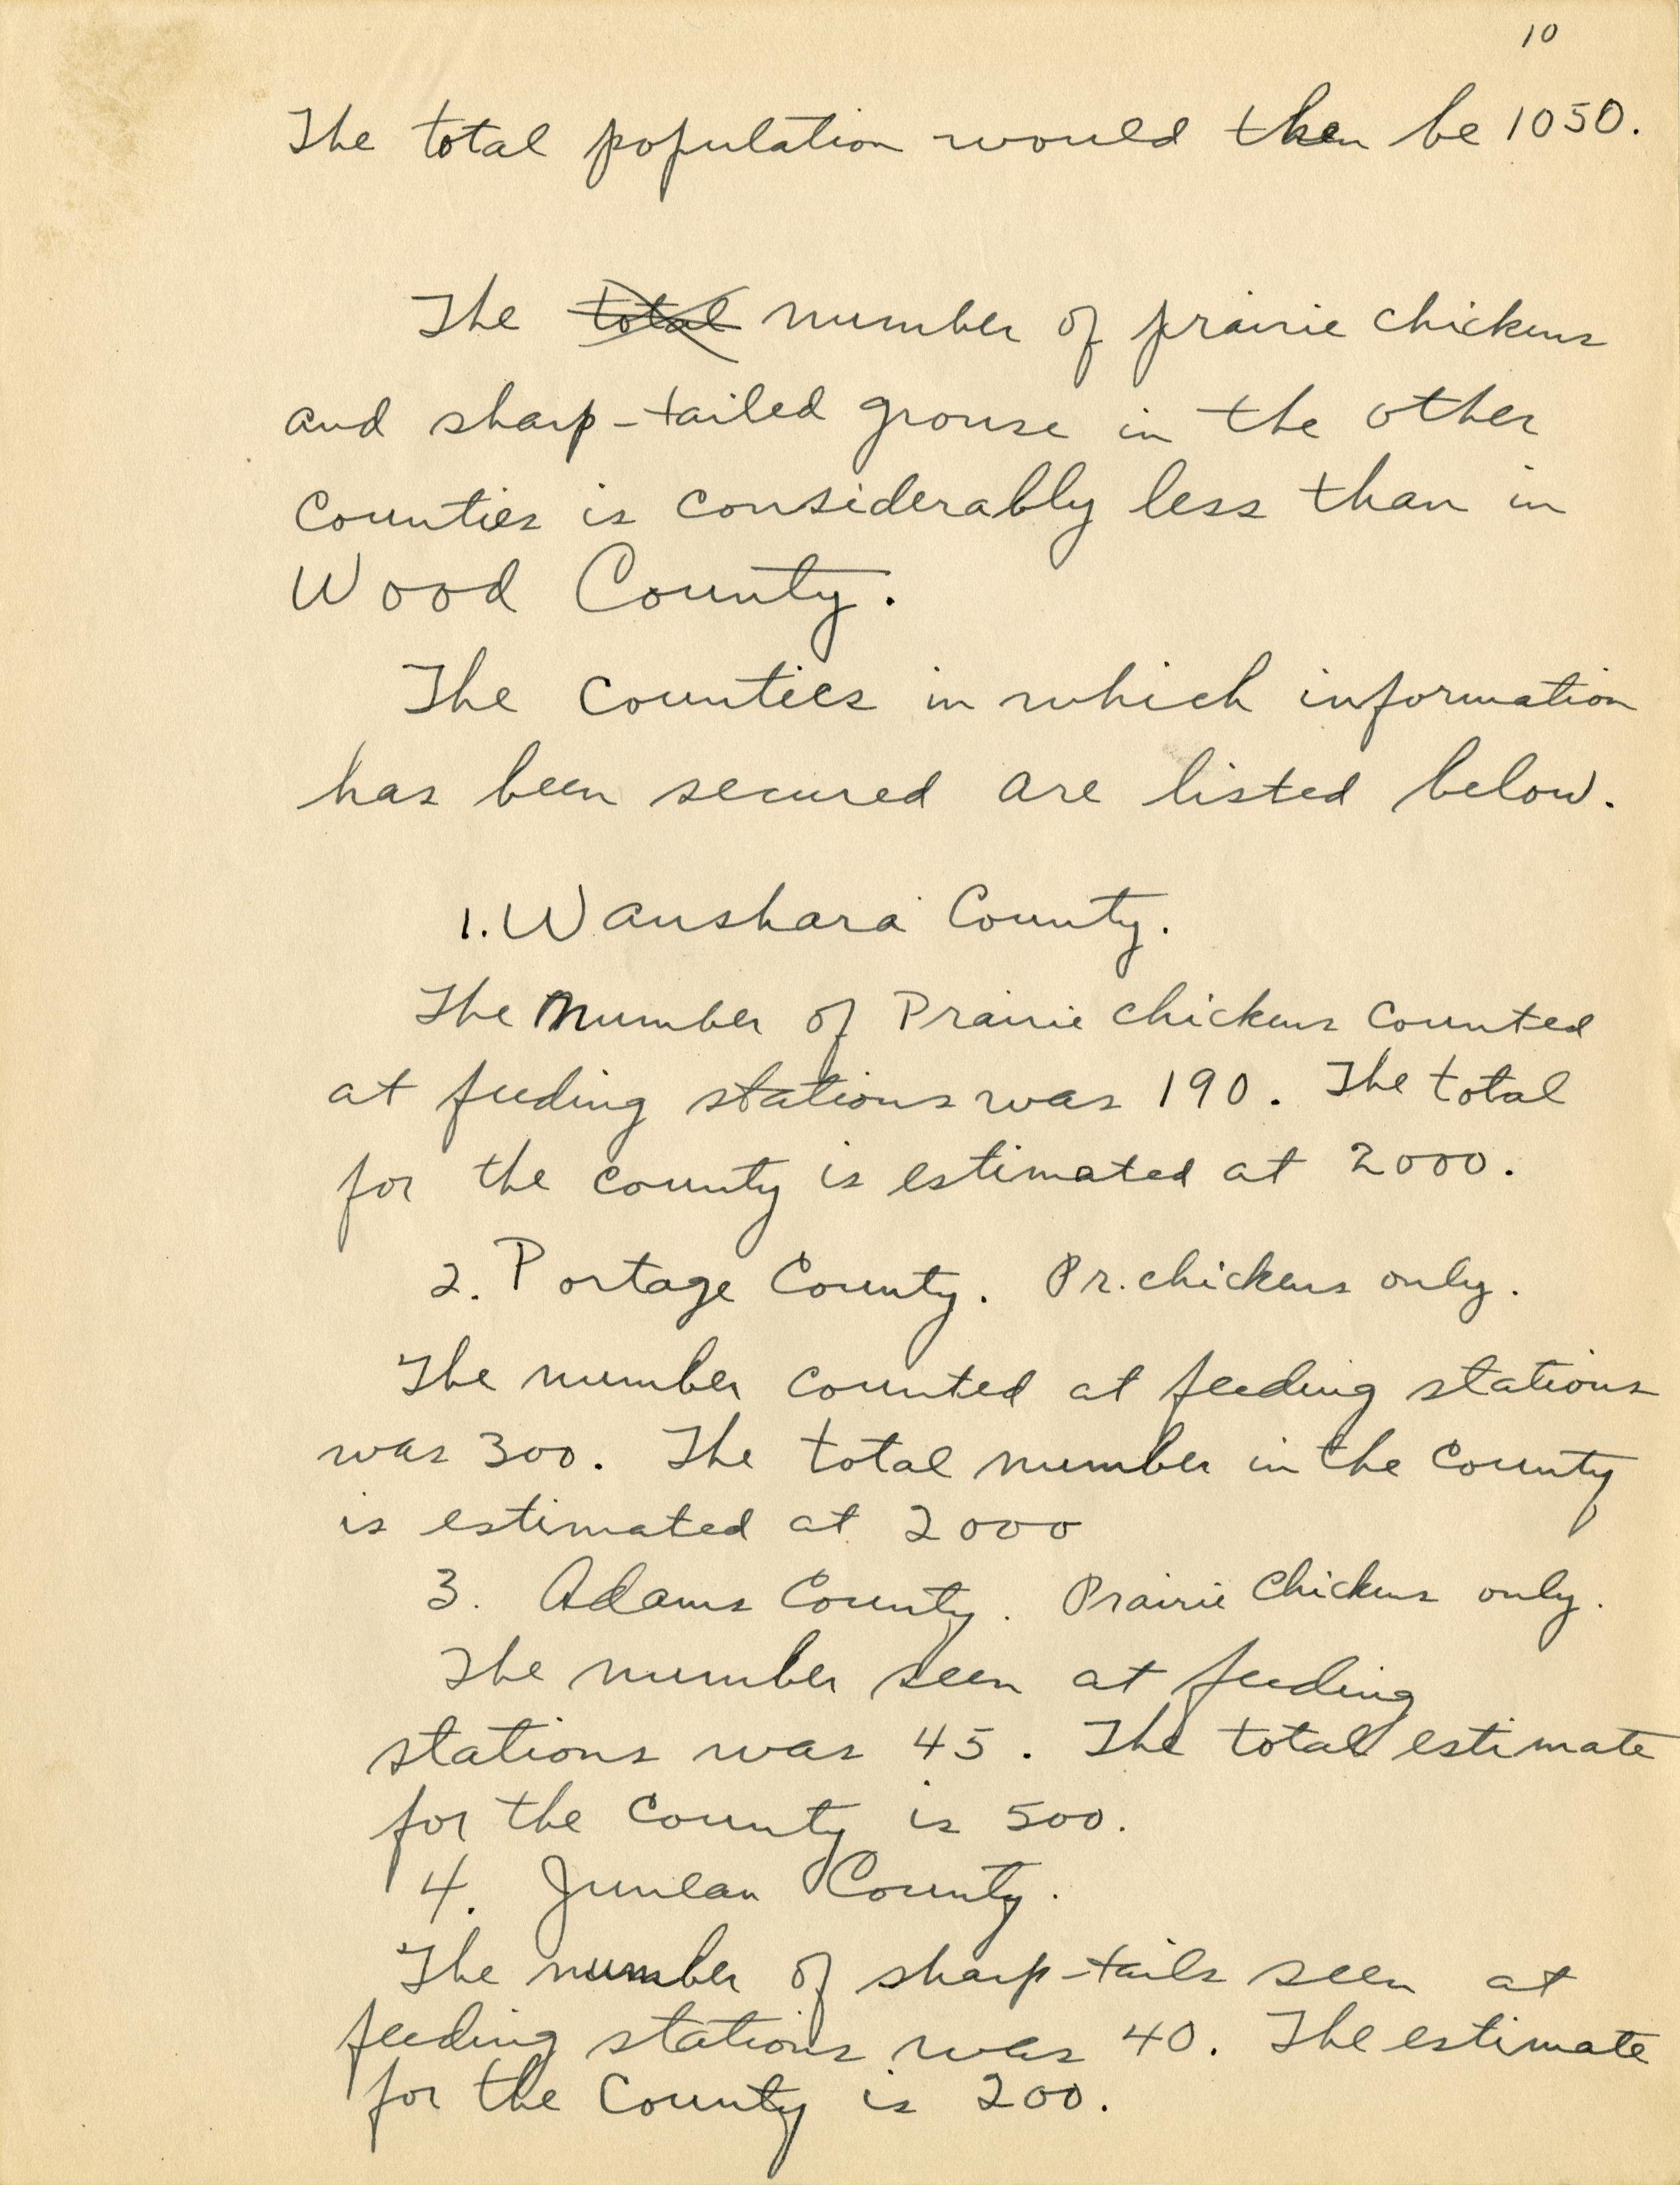 10
The total population would then be 1050.
The total number of prairie chickens
and sharp-tailed grouse in the other
counties is considerably less than in
Wood County.
The counties in which information
has been secured are listed below.
1. Waushara County.
The number of Prairie chickens counted
at feeding stations was 190. The total
for the county is estimated at 2000.
2. Portage County. Pr. chickens only.
The number counted at feeding stations
was 300. The total number in the county
is estimated at 2000
3. Adams County. Prairie Chickens only.
The number seen at feeding
stations was 45. The total estimate
for the county is 500.
4. Juneau County.
The number of sharp-tails seen at
feeding stations was 40. The estimate
for the County is 200.